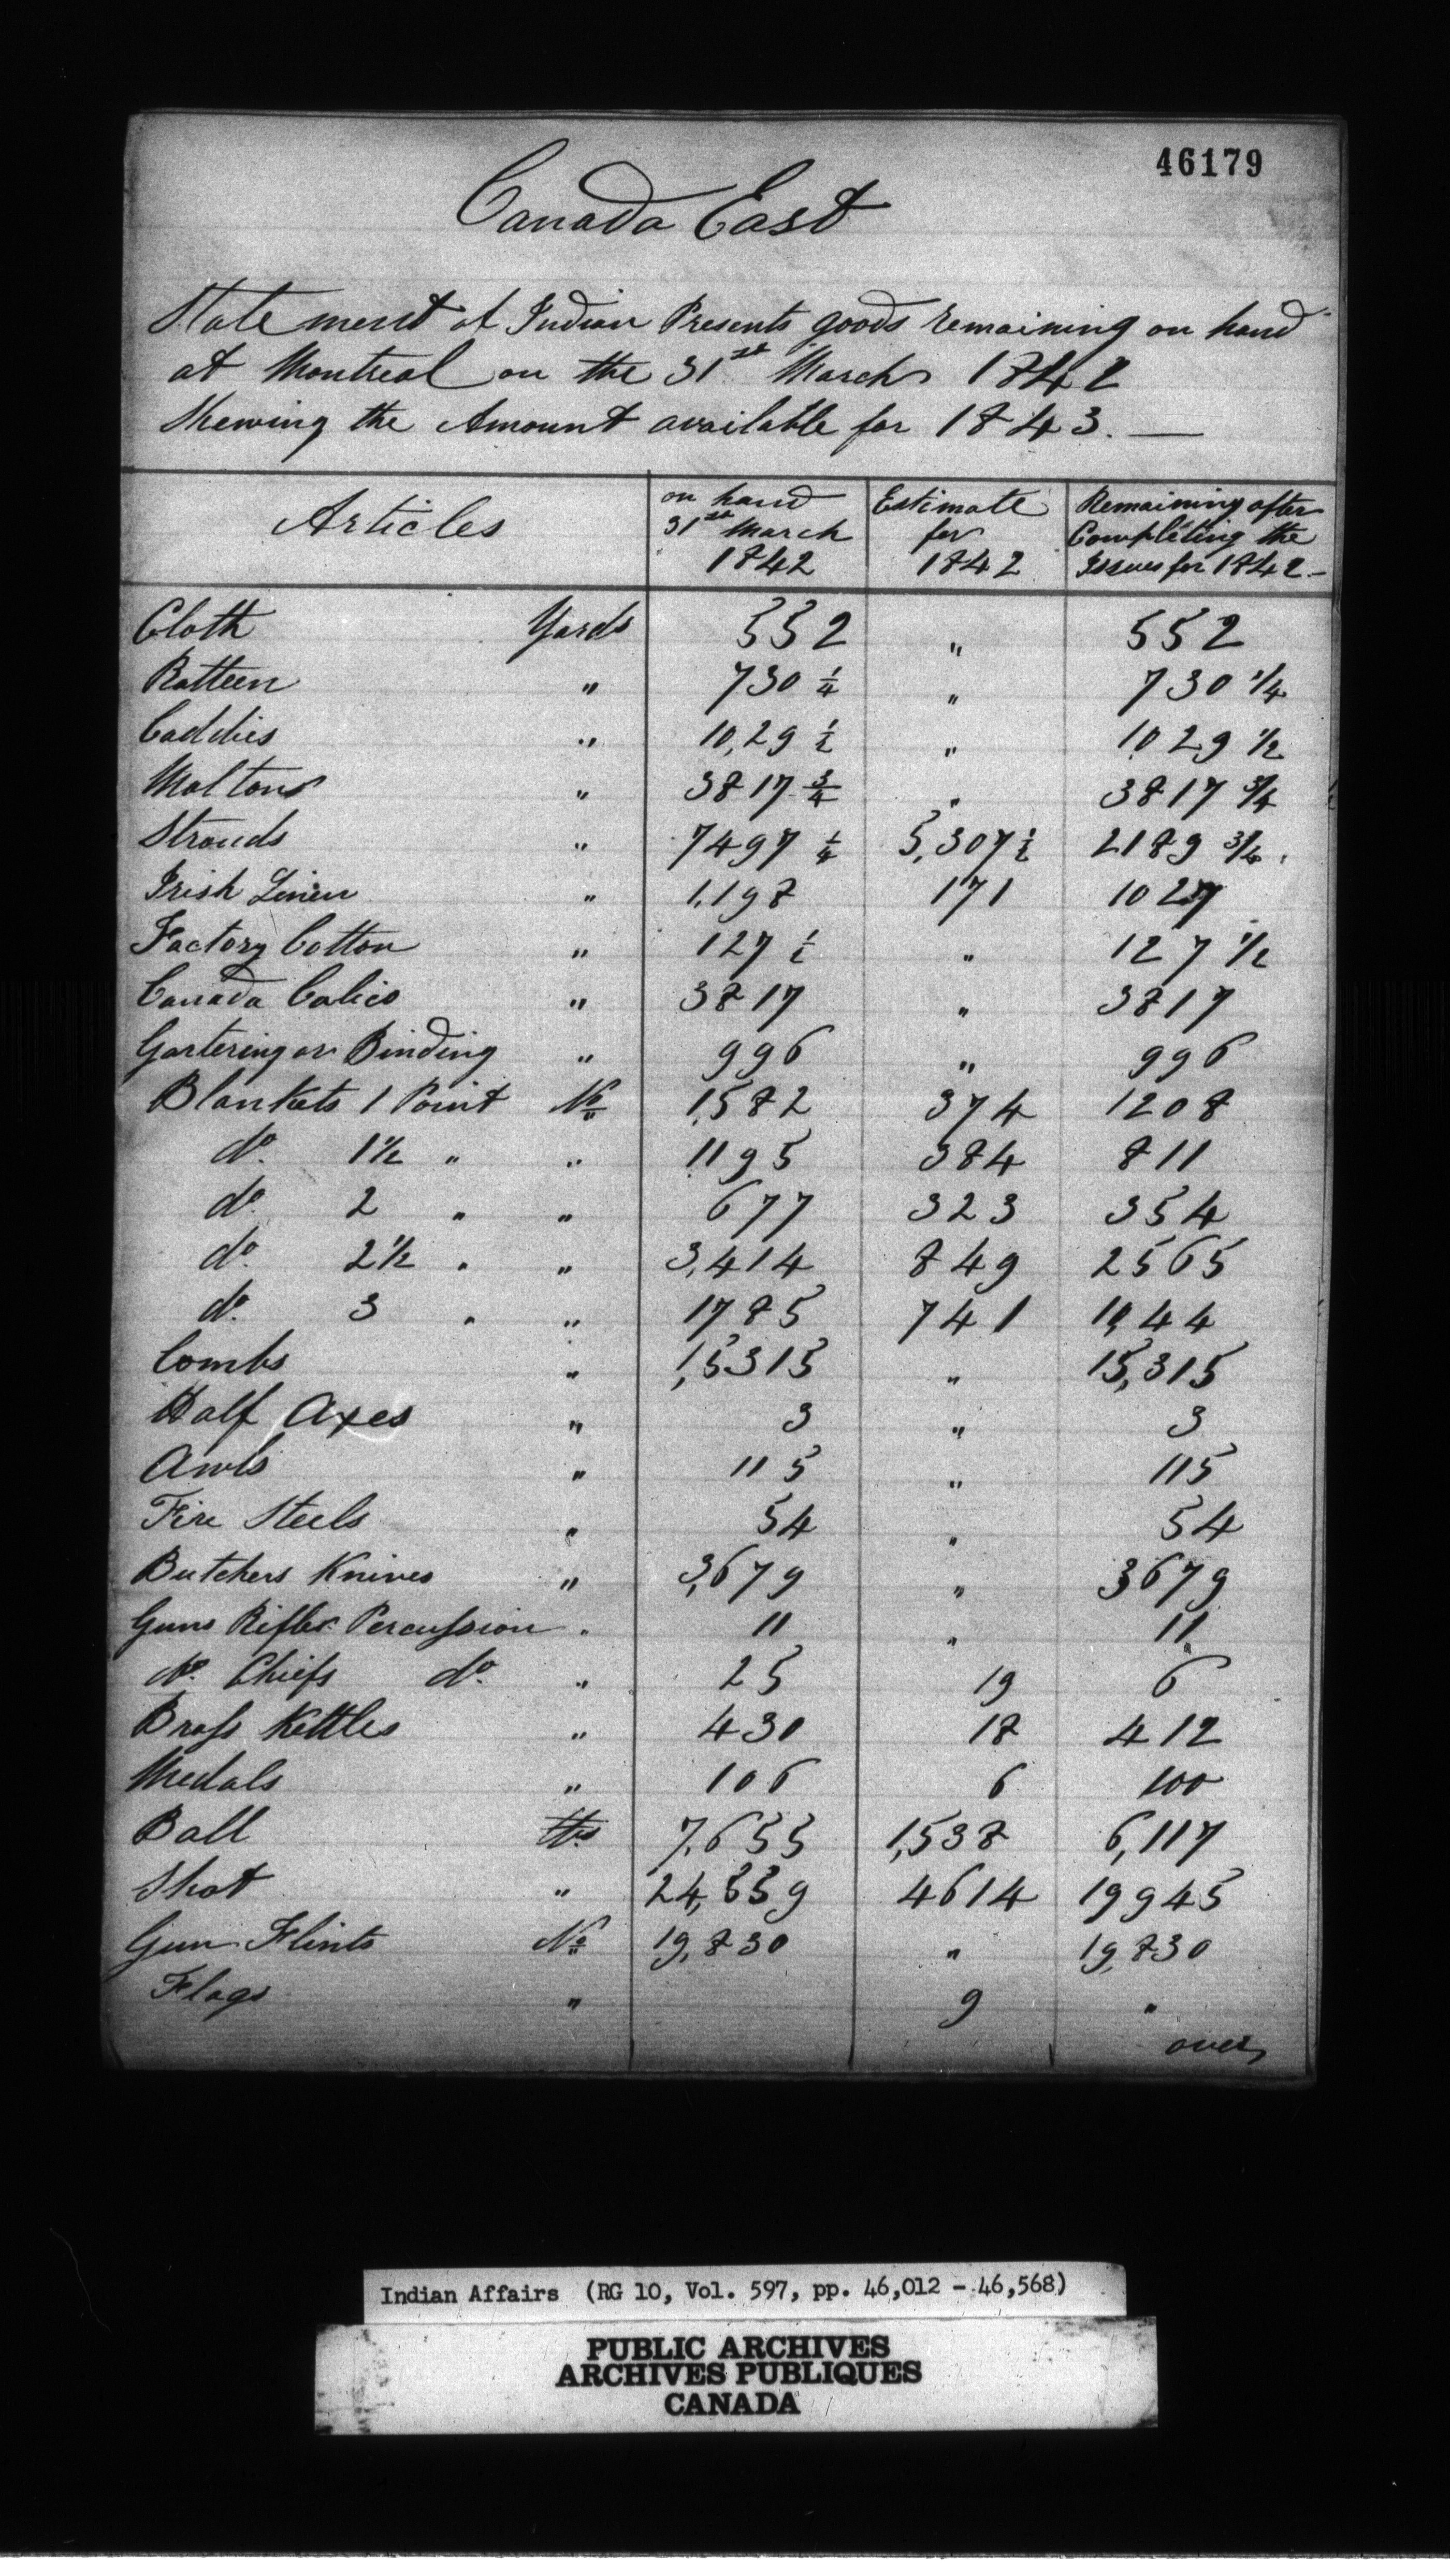 46179
Canada East
Statement of Indian Presents goods remaining on hand
at Montreal on the 31st March 1842
Shewing the Amount available for 1843. —
Articles | on hand 31st March 1842 | Estimate for 1842 | Remaining after Completing the Issues for 1842 –
Cloth Yards 552 " 552
Ratteen " 730 1/4 " 730 1/4
Caddies " 10,29 1/2 " 1029 1/2
Moltons " 3817 3/4 " 3817 3/4
Strouds " 7497 1/4 5,307 1/2 2189 3/4
Irish Linen " 1,198 171 1027
Factory Cotton " 127 1/2 " 127 1/2
Canada Calico " 3817 " 3817
Gartering or Binding " 996 " 996
Blankets 1 Point No 1,582 374 1208
do. 1½ " " 1195 384 811
do. 2 " " 677 323 354
do. 2½ " " 3,414 849 2565
do. 3 " " 1785 741 10,44
Combs " 1,5315 " 15,315
Half Axes " 3 " 3
Awls " 115 " 115
Fire Steels " 54 " 54
Butchers Knives " 3,679 " 3679
Guns Rifles Percussion " 11 " 11
do. Chiefs do. " 25 19 6
Brass Kettles " 430 18 412
Medals " 106 6 100
Ball lbs 7,655 1,538 6,117
Shot " 24,559 4614 19945
Gun Flints No 19,830 " 19,830
Flags " 9 "
over
Indian Affairs (RG 10, Vol. 597, pp. 46,012 - 46,568)
PUBLIC ARCHIVES
ARCHIVES PUBLIQUES
CANADA